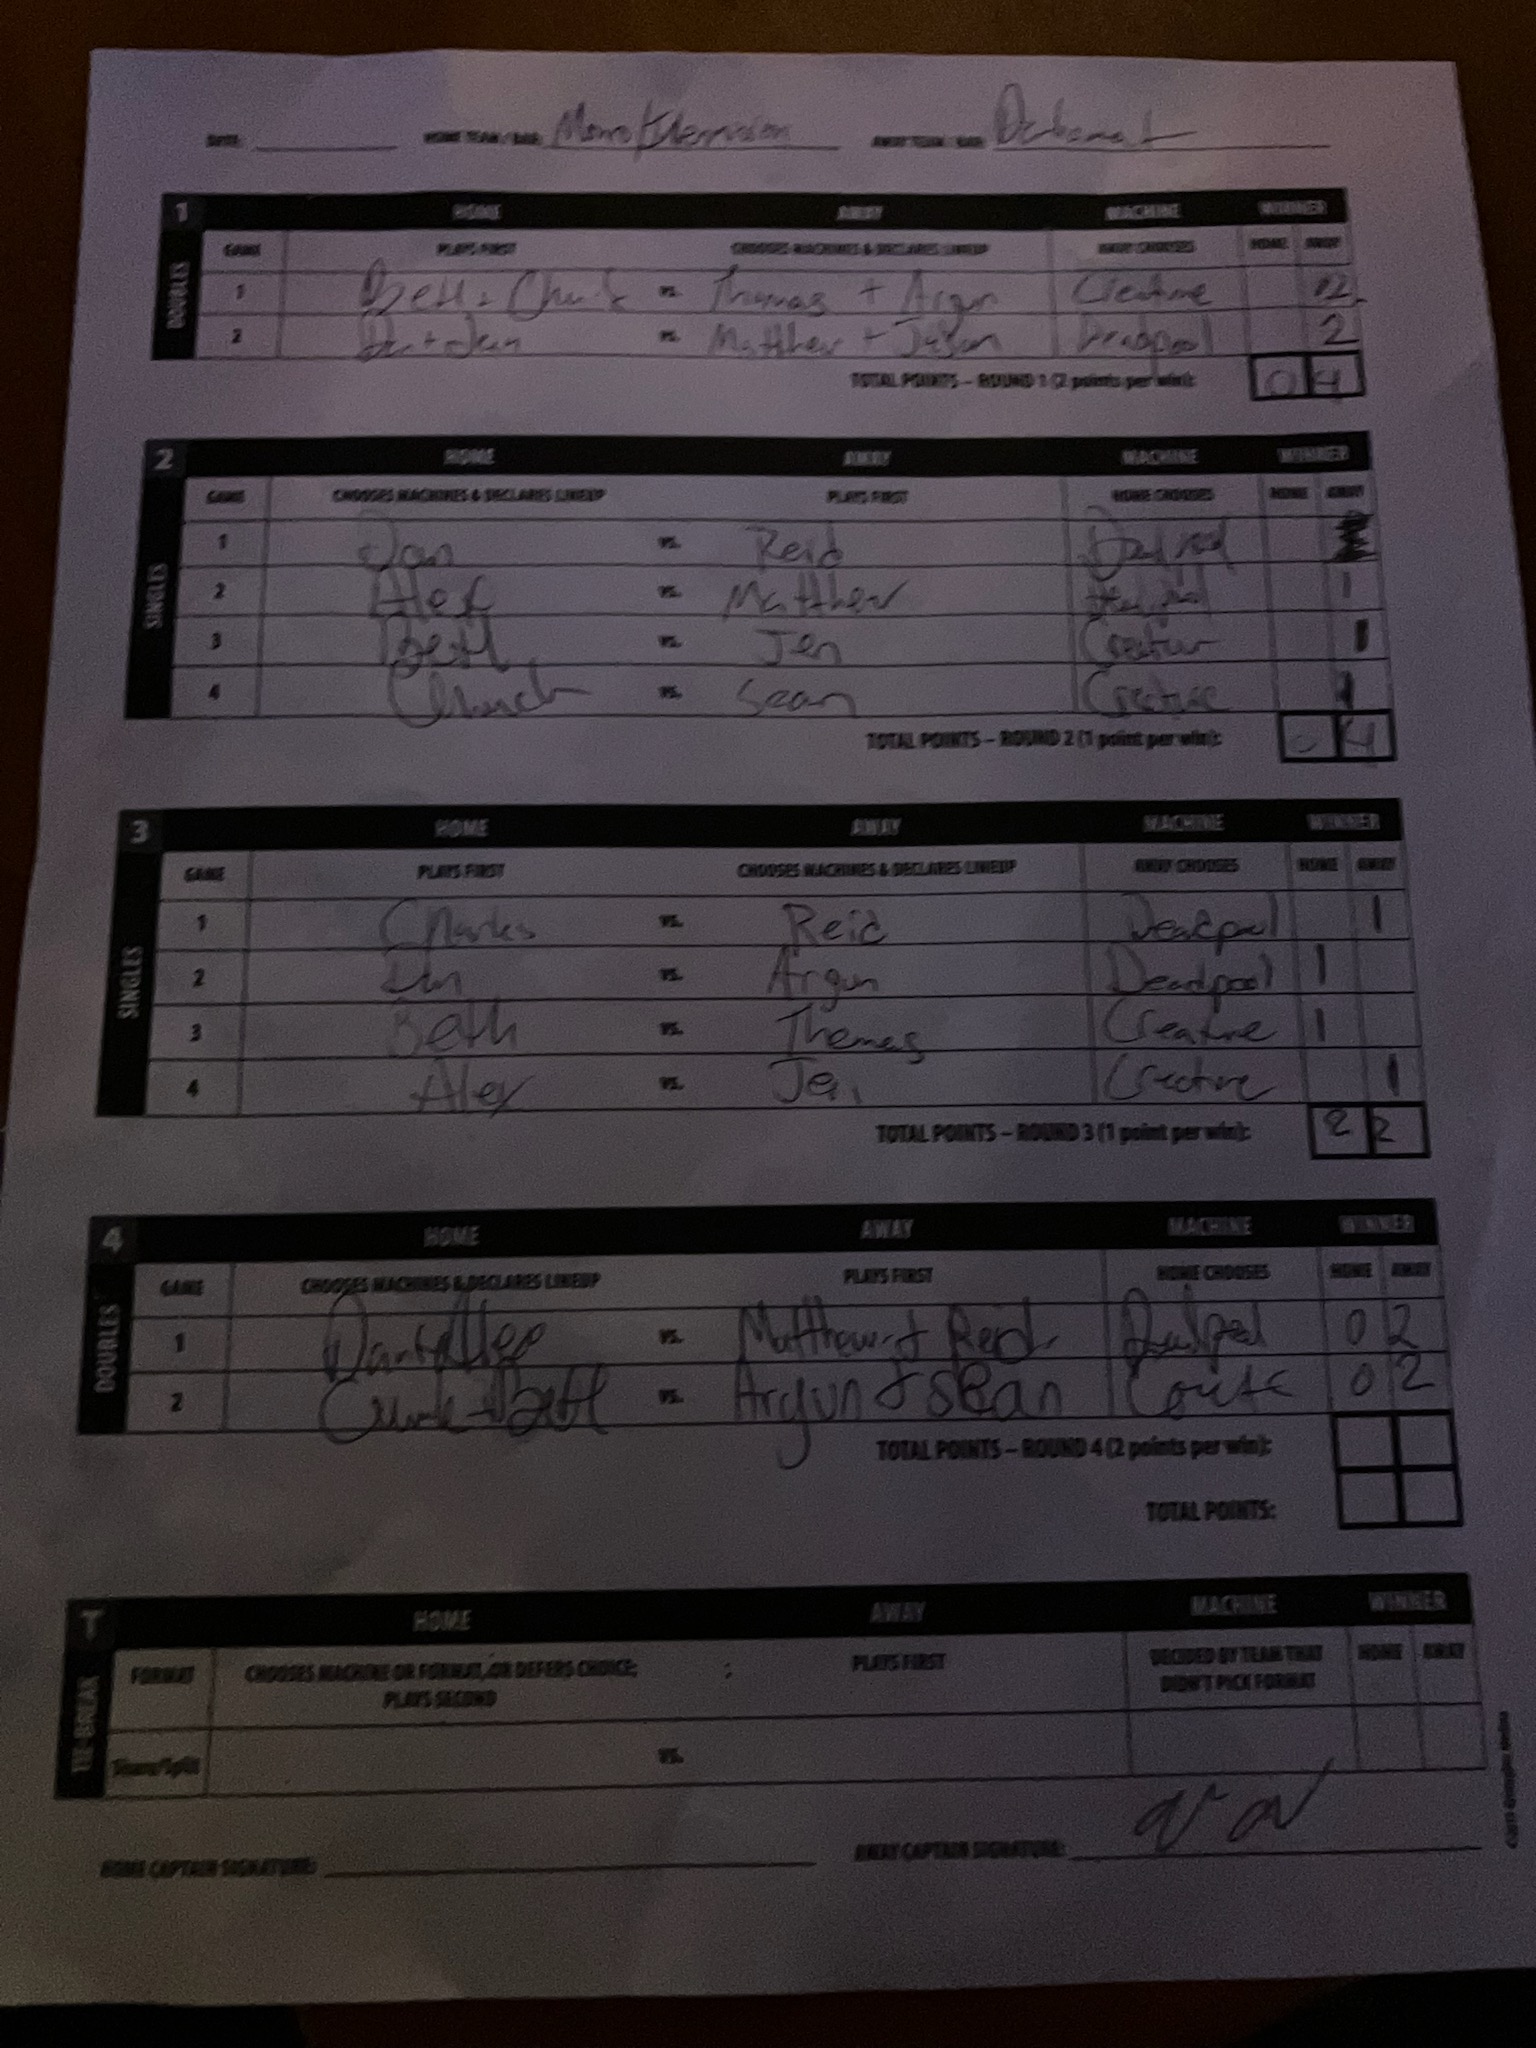 DATE: HOME TEAM / BAR: AWAY TEAM / BAR:
1 HOME AWAY MACHINE WINNER
DOUBLES
GAME PLAYS FIRST CHOOSES MACHINES & DECLARES LINEUP AWAY CHOOSES HOME AWAY
1 Beth + Chuck vs. Thomas + Argun Creature 2
2 vs. Matthew + Jason Deadpool 2
TOTAL POINTS – ROUND 1 (2 points per win): 0 4
2 HOME AWAY MACHINE WINNER
SINGLES
GAME CHOOSES MACHINES & DECLARES LINEUP PLAYS FIRST HOME CHOOSES HOME AWAY
1 Dan vs. Reid Deadpool
2 Alex vs. Matthew Deadpool 1
3 Beth vs. Jen Creature 1
4 Chuck vs. Sean Creature 1
TOTAL POINTS – ROUND 2 (1 point per win): 0 4
3 HOME AWAY MACHINE WINNER
SINGLES
GAME PLAYS FIRST CHOOSES MACHINES & DECLARES LINEUP AWAY CHOOSES HOME AWAY
1 Charles vs. Reid Deadpool 1
2 Dan vs. Argun Deadpool 1
3 Beth vs. Thomas Creature 1
4 Alex vs. Jen Creature 1
TOTAL POINTS – ROUND 3 (1 point per win): 2 2
4 HOME AWAY MACHINE WINNER
DOUBLES
GAME CHOOSES MACHINES & DECLARES LINEUP PLAYS FIRST HOME CHOOSES HOME AWAY
1 vs. Matthew + Reid Deadpool 0 2
2 vs. Argun & Sean 0 2
TOTAL POINTS – ROUND 4 (2 points per win):
TOTAL POINTS:
T HOME AWAY MACHINE WINNER
TIE-BREAK
FORMAT CHOOSES MACHINE OR FORMAT, OR DEFERS CHOICE; PLAYS FIRST DECIDED BY TEAM THAT HOME AWAY
PLAYS SECOND DIDN'T PICK FORMAT
vs.
HOME CAPTAIN SIGNATURE: AWAY CAPTAIN SIGNATURE: